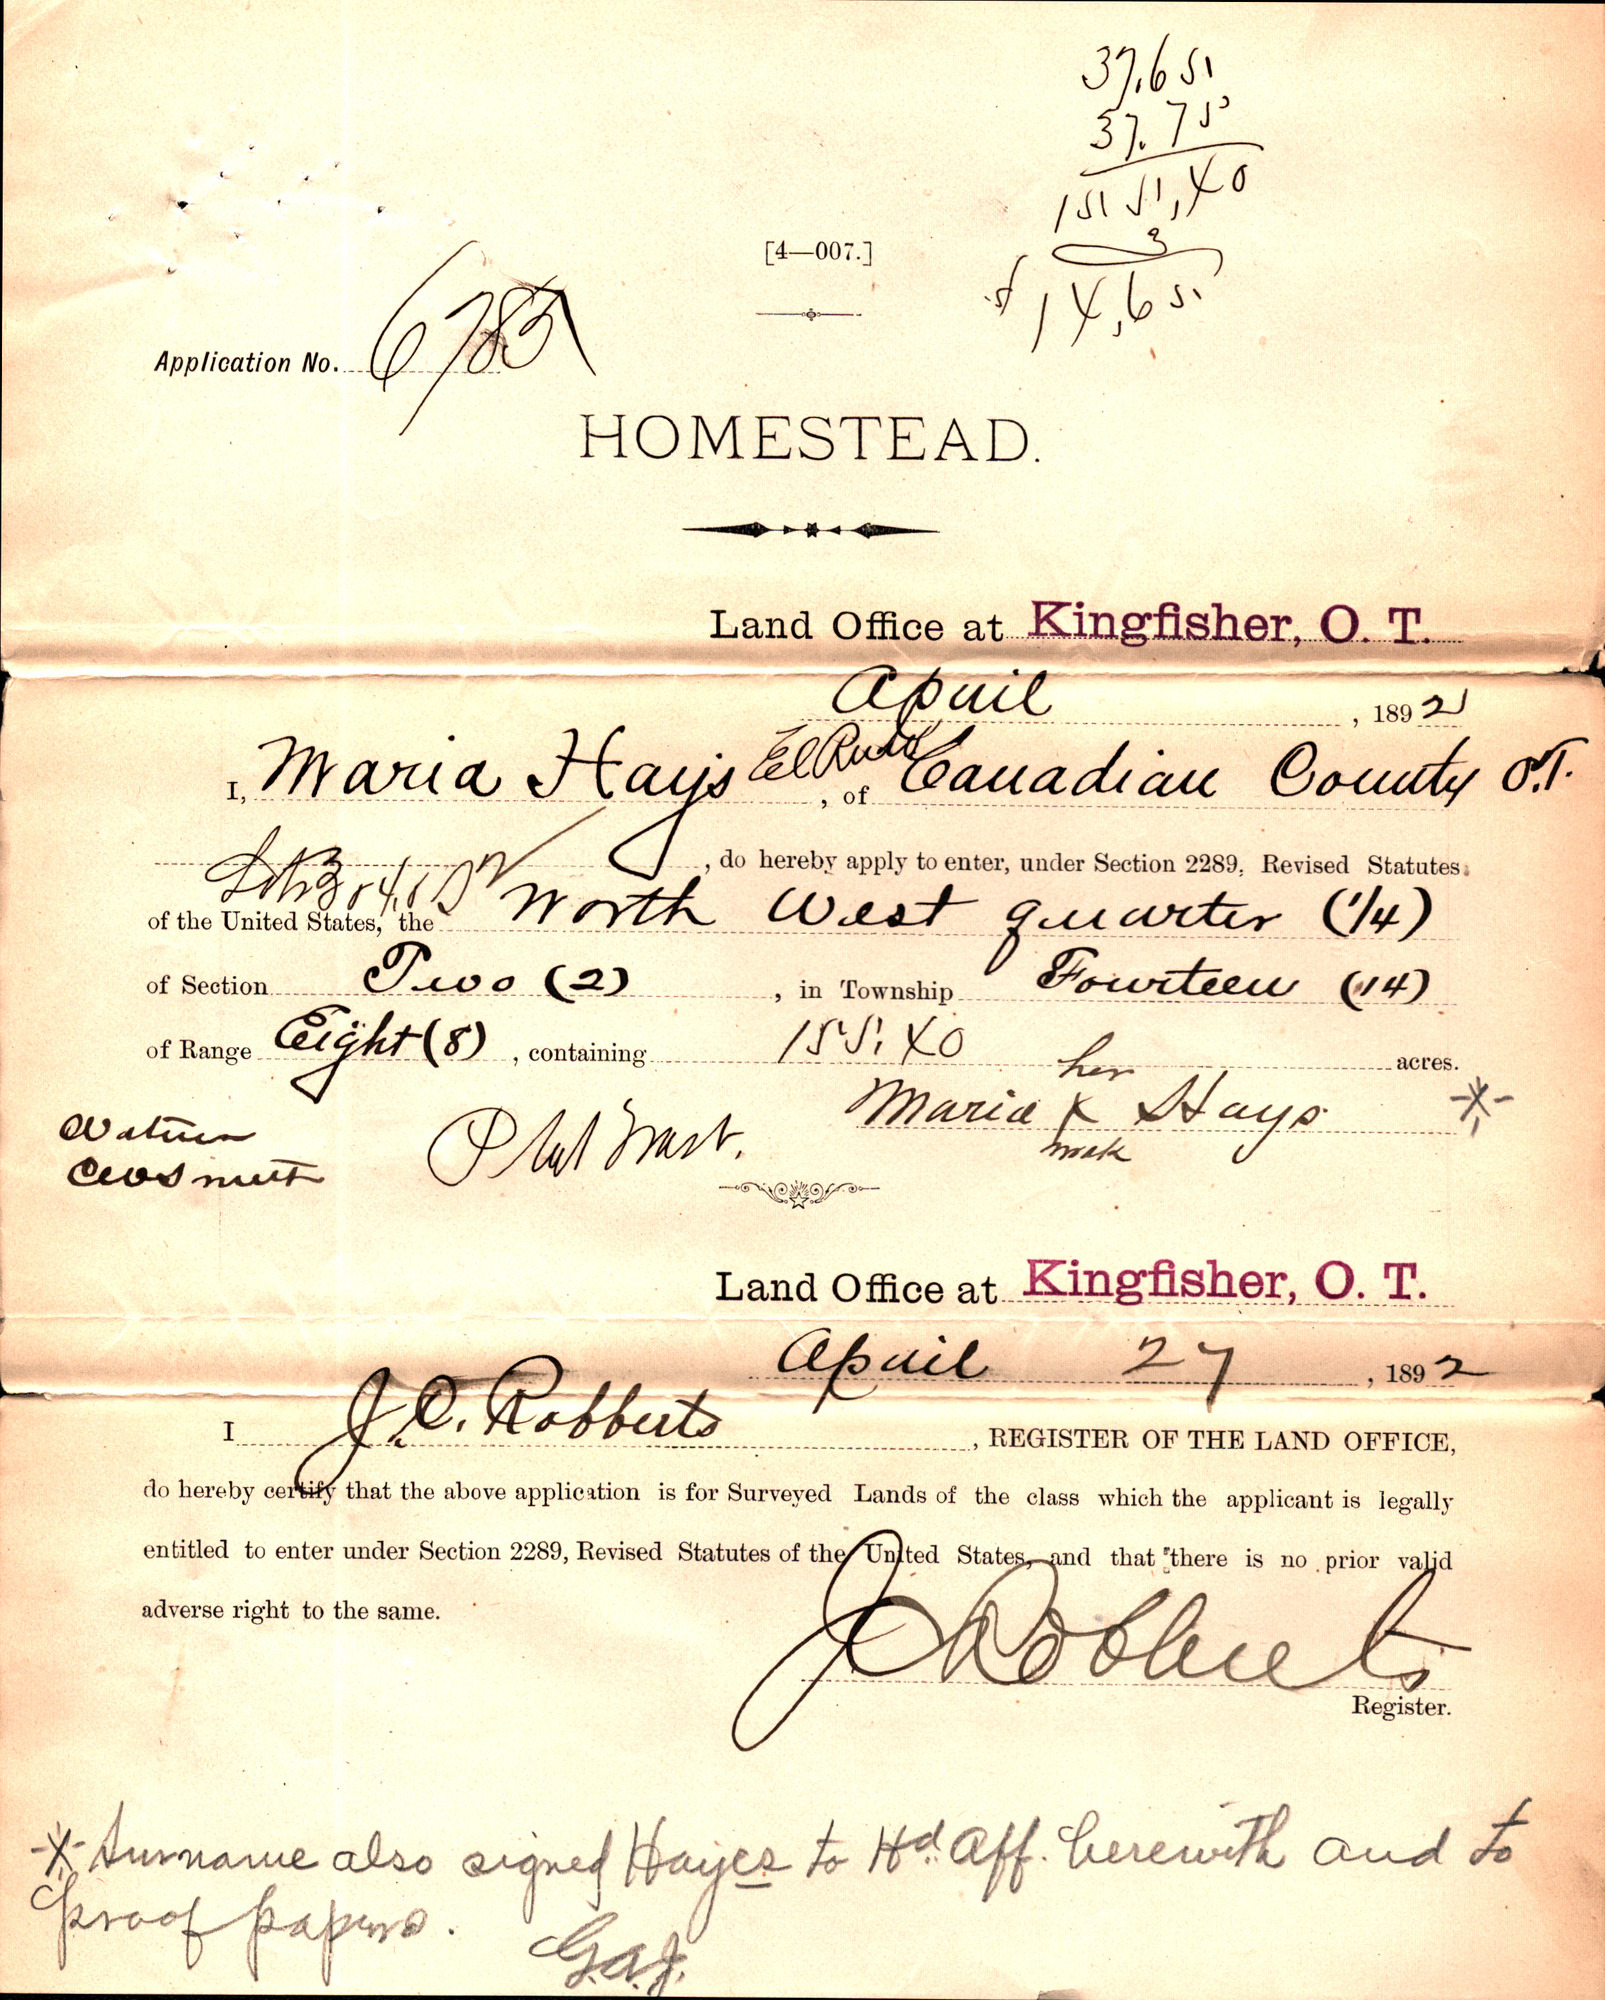 37.65
37.75
155.40
3
14.65
[4—007.]
Application No. 6785
HOMESTEAD.
Land Office at Kingfisher, O. T.
April , 1892
I, Maria Hays El Reno , of Canadian County O.T.
, do hereby apply to enter, under Section 2289, Revised Statutes
Lots 3 & 4, & S/2
of the United States, the North West quarter (1/4)
of Section Two (2) , in Township Fourteen (14)
of Range Eight (8) , containing 155.40 acres.
her
Maria X Hays -X-
mark
Witness
Land Office at Kingfisher, O. T.
April 27 , 1892
I J. C. Robberts , REGISTER OF THE LAND OFFICE,
do hereby certify that the above application is for Surveyed Lands of the class which the applicant is legally
entitled to enter under Section 2289, Revised Statutes of the United States, and that there is no prior valid
adverse right to the same.
J C Robberts
Register.
-X- Surname also signed Hayes to Hd. Aff. herewith and to
proof papers.
G.A.J.